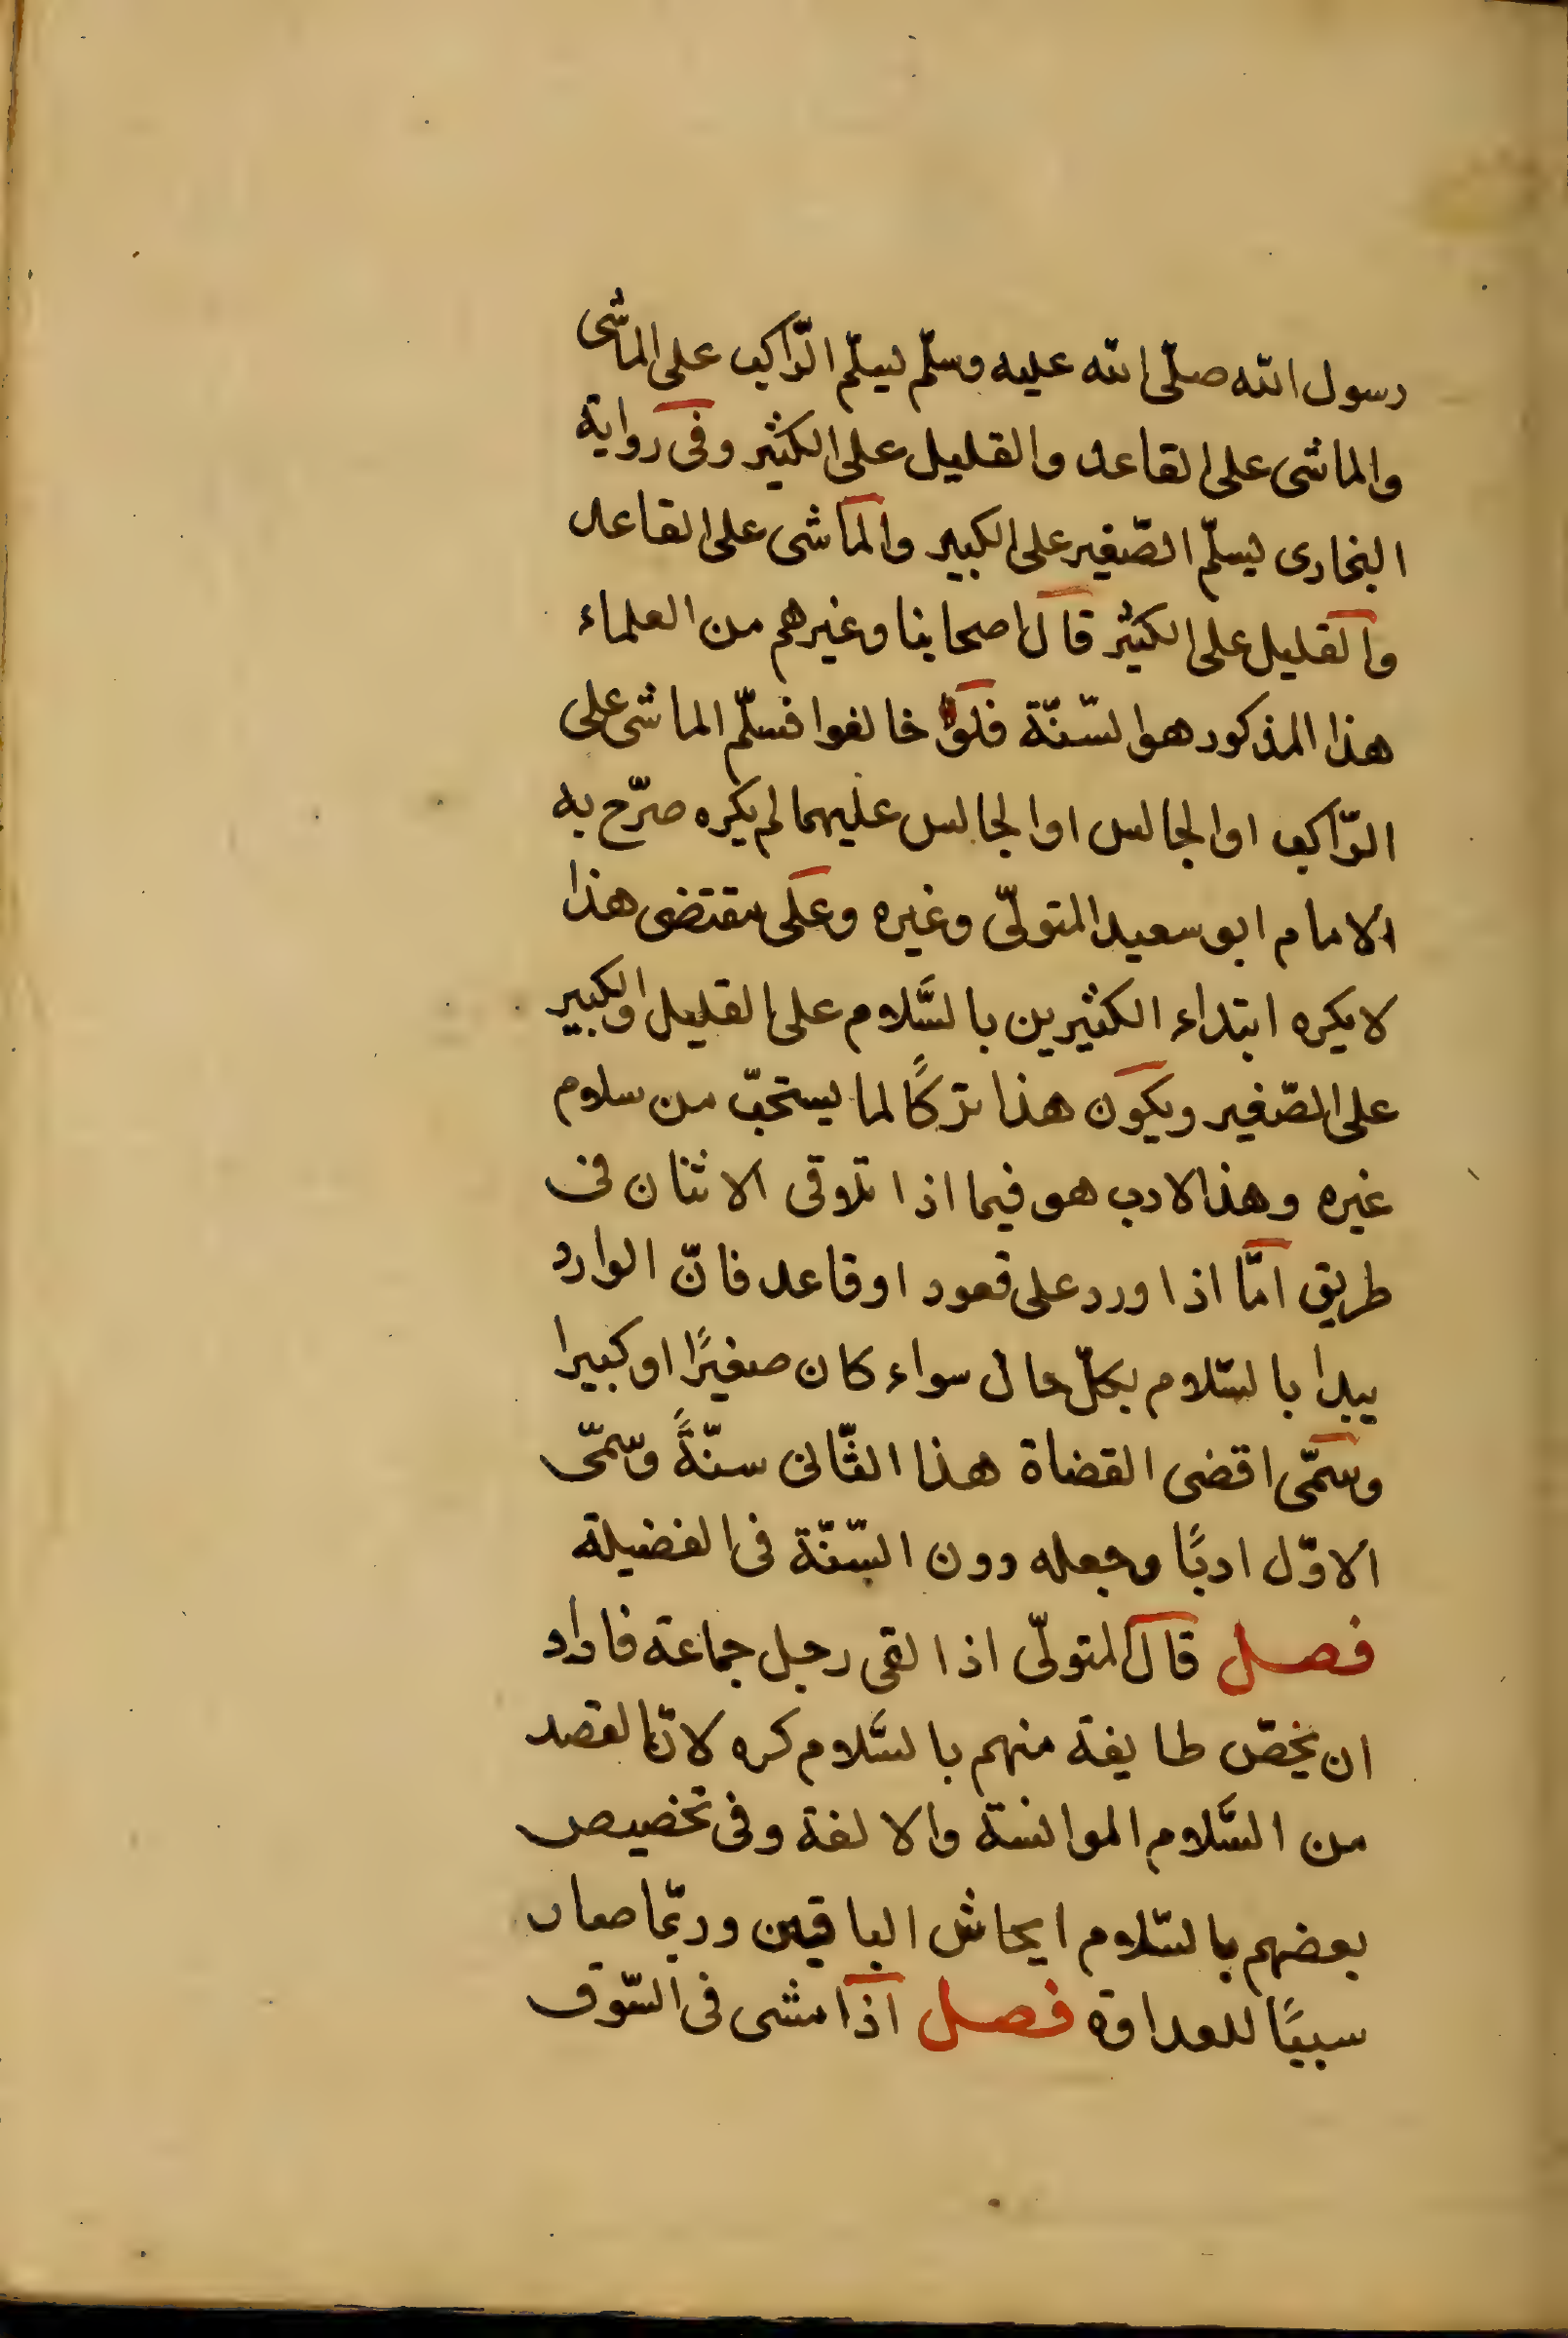 رسول الله صلّى الله عليه وسلّم ليسلّم الرّاكب على الماشى
والماشى على القاعد والقليل على الكثير وفى رواية
البخارى ليسلّم الصّغير على الكبير والماشى على القاعد
والقليل على الكثير قال اصحابنا وغيرهم من العلماء
هذا المذكور هو السّنّة فلو خالفوا فسلّم الماشى على
الرّاكب او الجالس او الجالس عليهما لم يكره صرّح به
الامام ابو سعيد المتولّى وغيره وعلى مقتضى هذا
لا يكره ابتداء الكثيرين بالسّلام على القليل والكبير
على الصّغير ويكون هذا تركًا لما يستحبّ من سلام
غيره وهذا الادب هو فيما اذا تلاقى الاثنان فى
طريق امّا اذا ورد على قعود او قاعد فانّ الوارد
يبدا بالسّلام بكلّ حال سواء كان صغيرًا او كبيرا
وسمّى اقضى القضاة هذا الثّانى سنّةً وسمّى
الاوّل ادبًا وجعله دون السّنّة فى الفضيلة
فصل قال المتولّى اذا لقى رجل جماعة فاراد
ان يخصّ طايفة منهم بالسّلام كره لانّ القصد
من السّلام الموانسة والالفة وفى تخصيص
بعضهم بالسّلام ايحاش الباقين وربّما صار
سببًا للعداوة فصل اذا مشى فى السّوق